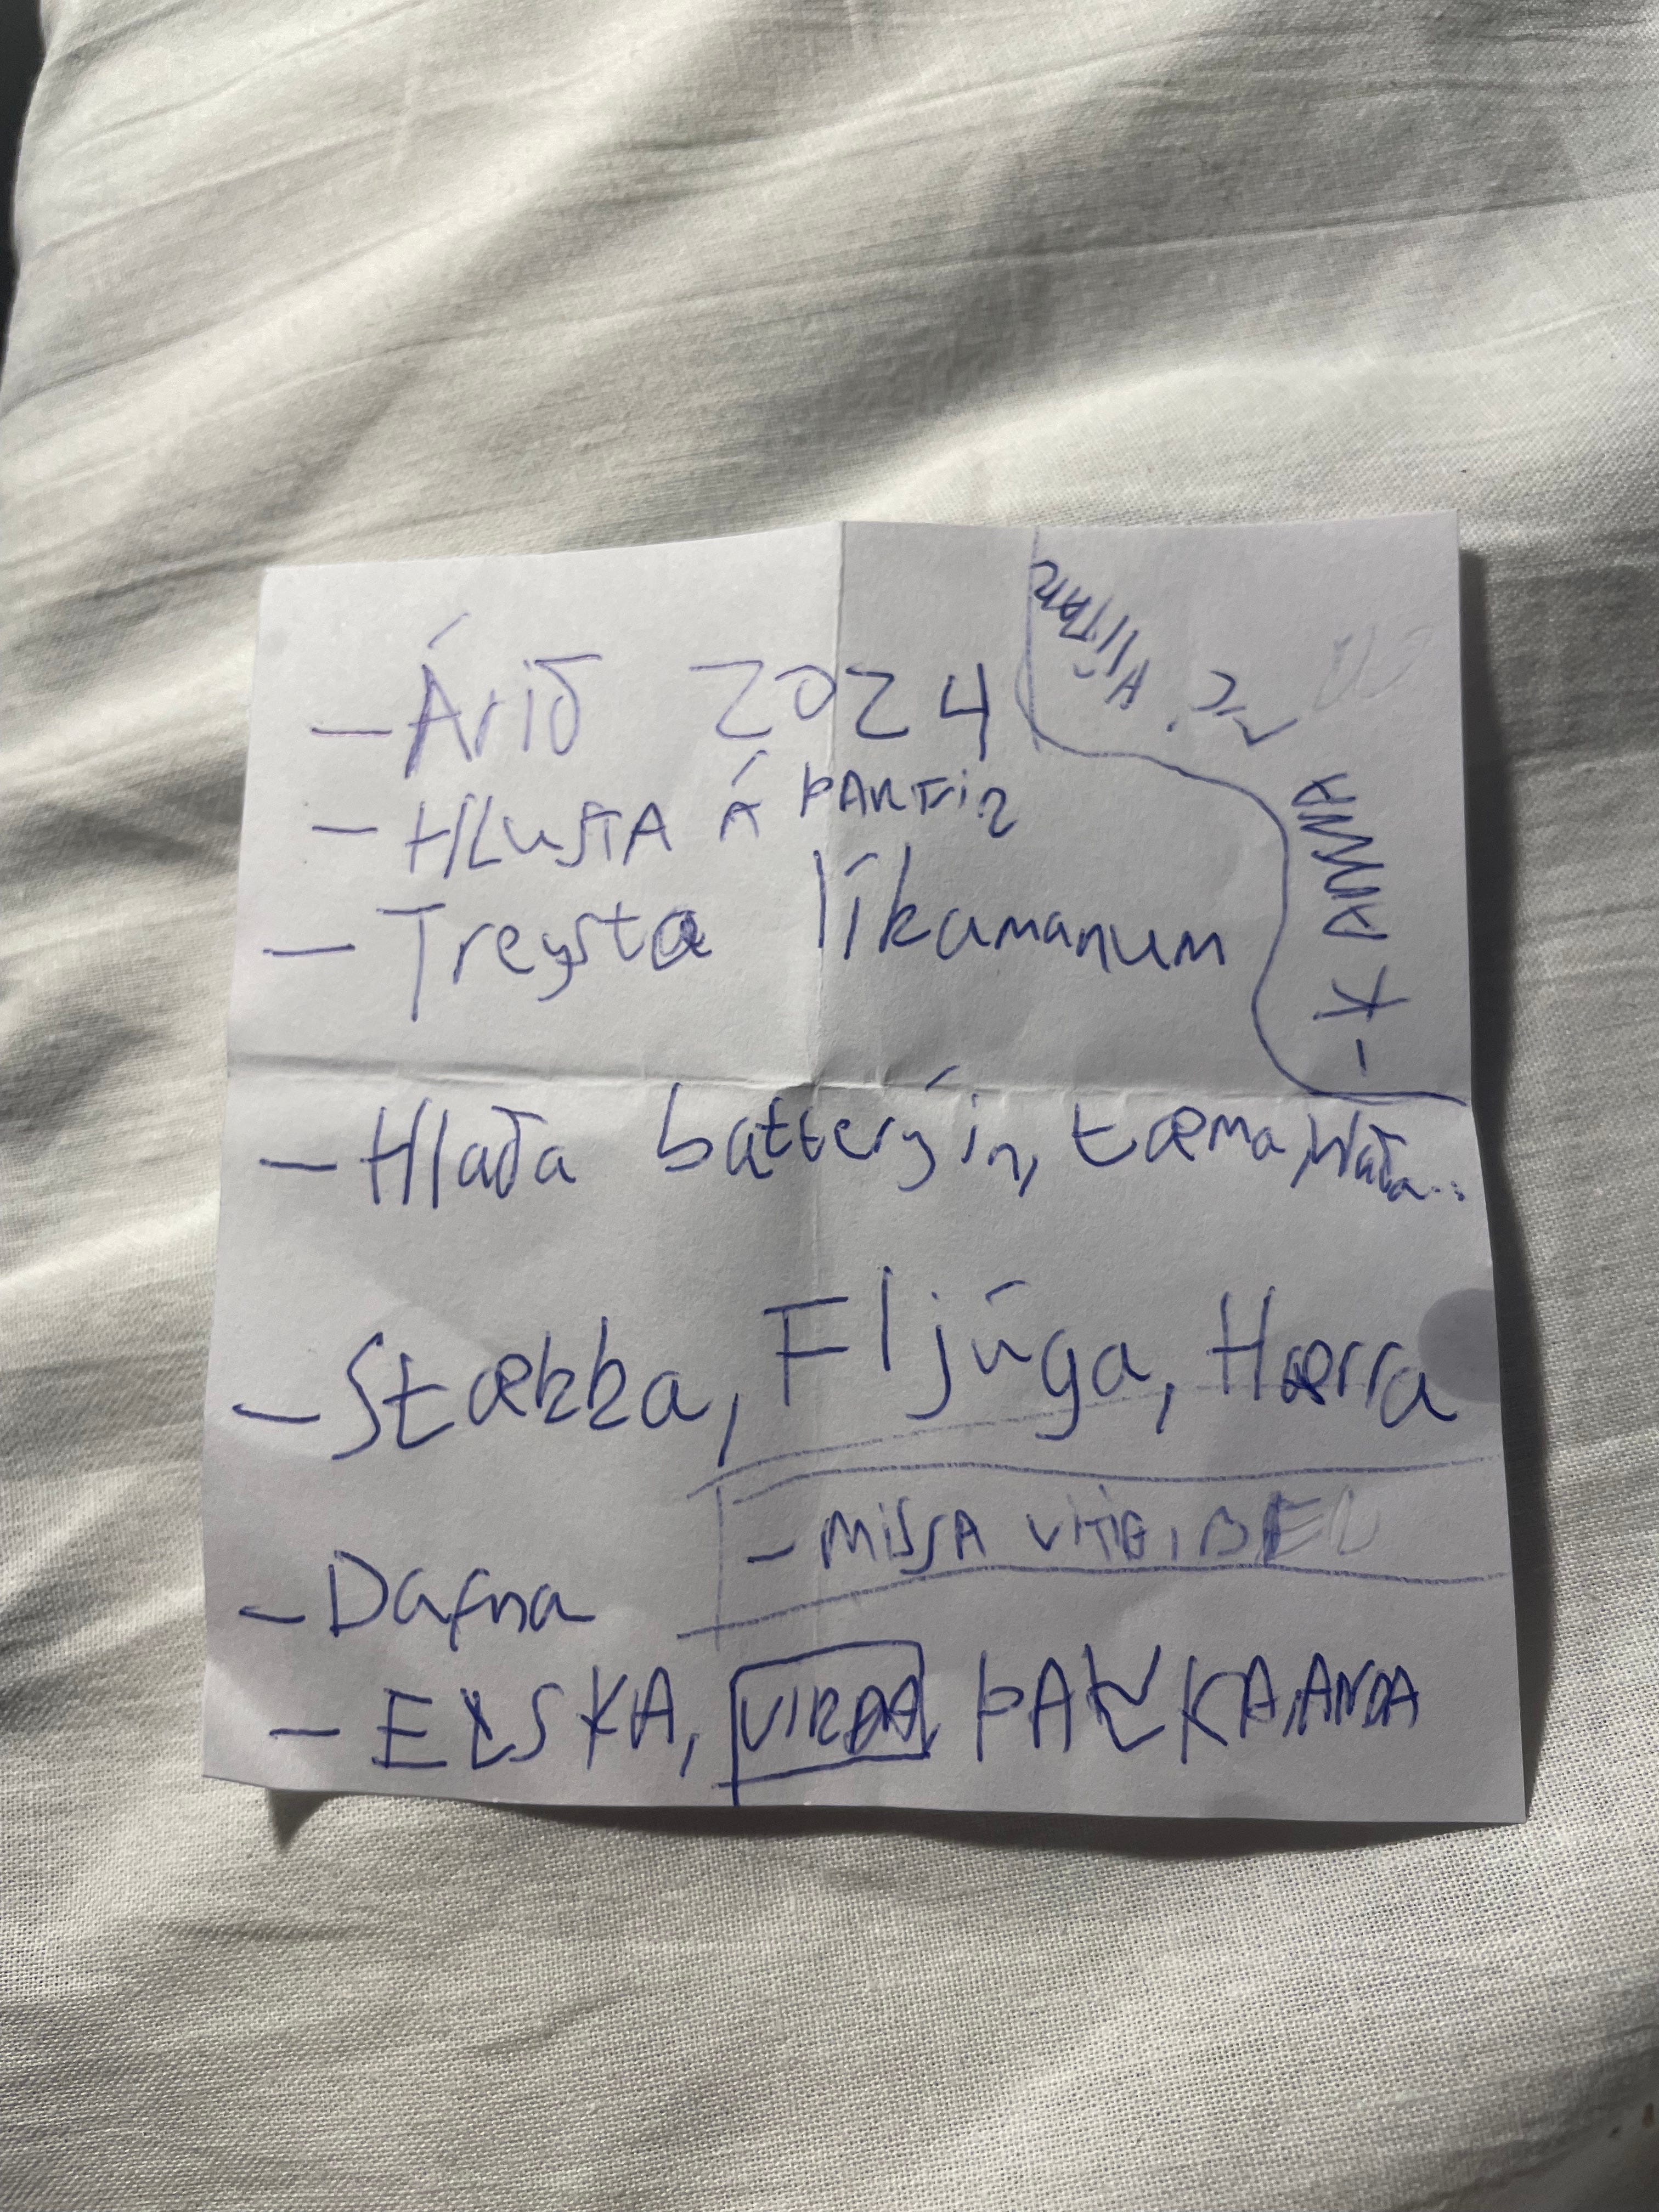 - Árið 2024
- HLUSTA Á ÞARFIR
- Treysta líkamanum
- KANNA
- Hlaða batterýin, tæma, hlaða...
- Stækka, Fljúga, Hærra
- MISSA VITIÐ,
- Dafna
- ELSKA, VIRÐA, ÞAKKA, ANDA